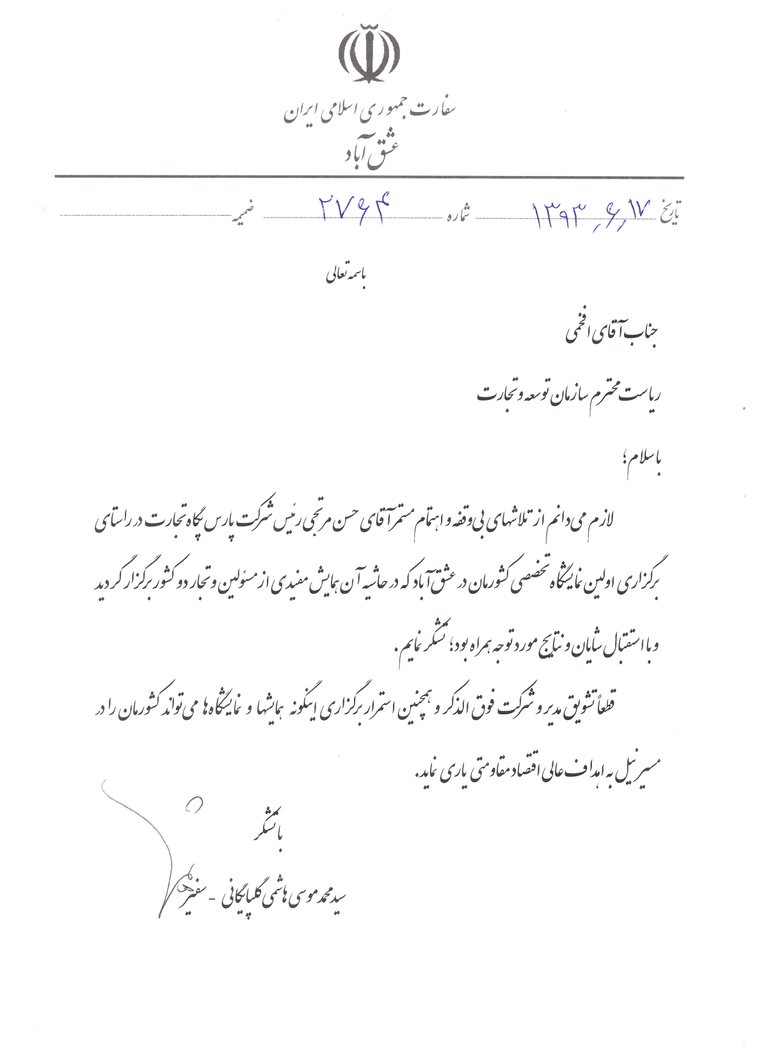 سفارت جمهوری اسلامی ایران
عشق آباد
تاریخ ۱۳۹۳،۶،۱۷ شماره ۲۷۶۴ ضمیمه
باسمه تعالی
جناب آقای افخمی
ریاست محترم سازمان توسعه و تجارت
با سلام؛
لازم می‌دانم از تلاشهای بی‌وقفه و اهتمام مستمر آقای حسن مرتجی رئیس شرکت پارس پگاه تجارت در راستای
برگزاری اولین نمایشگاه تخصصی کشورمان در عشق آباد که در حاشیه آن همایش مفیدی از مسئولین و تجار دو کشور برگزار گردید
و با استقبال شایان و نتایج مورد توجه همراه بود؛ تشکر نمایم.
قطعاً تشویق مدیر و شرکت فوق الذکر و همچنین استمرار برگزاری اینگونه همایشها و نمایشگاه‌ها می‌تواند کشورمان را در
مسیر نیل به اهداف عالی اقتصاد مقاومتی یاری نماید.
با تشکر
سید محمد موسی هاشمی گلپایگانی - سفیر